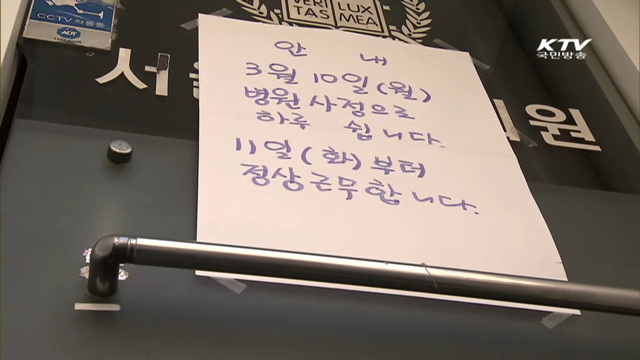 CCTV 작동중
ADT
VERI LUX
TAS MEA
KTV
국민방송
서울
의원
안 내
3월 10일(월)
병원 사정으로
하루 쉽니다.
11일(화)부터
정상근무합니다.